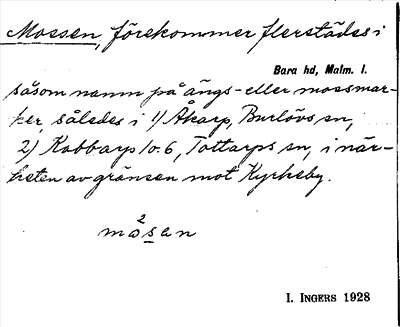 Mossen, förekommer flerstädes i
Bara hd, Malm. l.
såsom namn på ängs- eller mossmar-
ker, således i 1) Åkarp, Burlövs sn,
2) Kabbarp 10.6, Tottarps sn, i när-
heten av gränsen mot Kyrkeby.
2
måsen
I. INGERS 1928